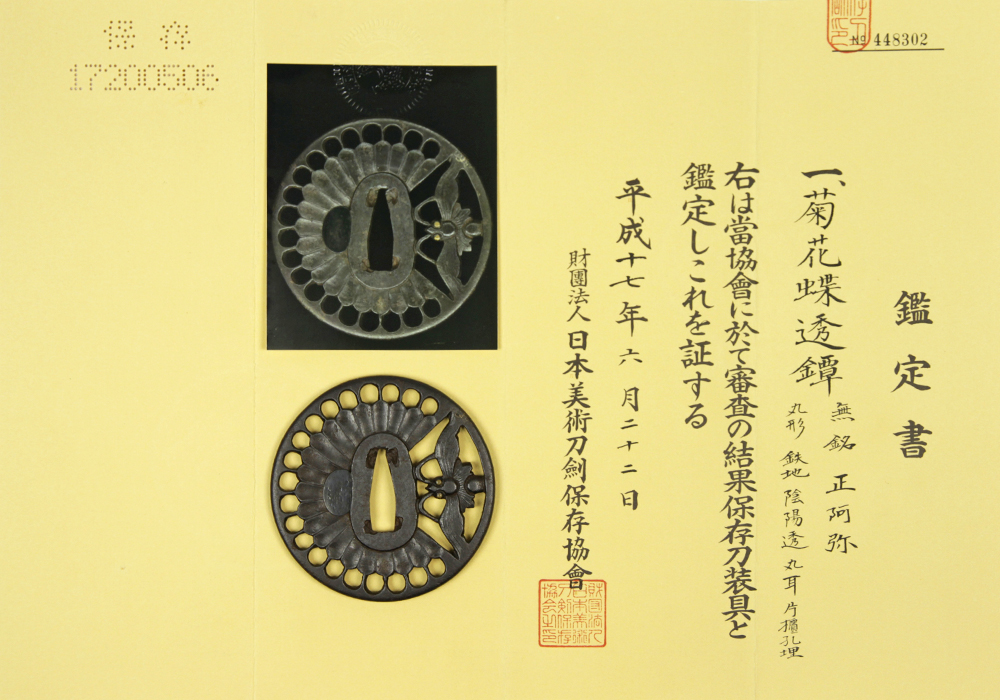 鑑定書
一、菊花蝶透鐔
無銘 正阿弥
丸形 鉄地 陰陽透 丸耳 片櫃孔埋
右は當協會に於て審査の結果保存刀装具と
鑑定しこれを証する
平成十七年六月二十二日
財團法人 日本美術刀劍保存協會
№ 448302
保存
17200506